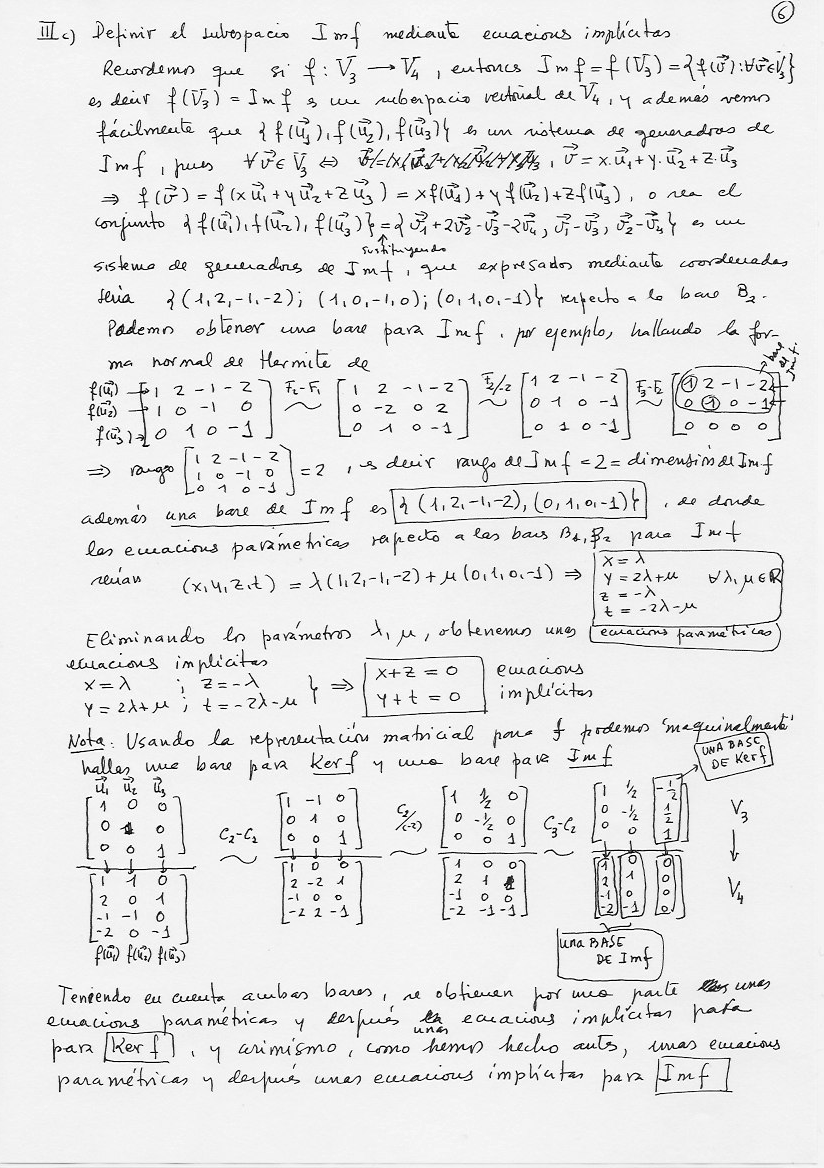 6
III c) Definir el subespacio Im f mediante ecuaciones implícitas
Recordemos que si f: V₃ → V₄, entonces Im f = f(V₃) = {f(v⃗): ∀v⃗ ∈ V₃}
es decir f(V₃) = Im f es un subespacio vectorial de V₄, y además vemos
fácilmente que {f(u⃗₁), f(u⃗₂), f(u⃗₃)} es un sistema de generadores de
Im f, pues ∀v⃗ ∈ V₃ ⇔ , v⃗ = x·u⃗₁ + y·u⃗₂ + z·u⃗₃
⇒ f(v⃗) = f(xu⃗₁ + yu⃗₂ + zu⃗₃) = xf(u⃗₁) + yf(u⃗₂) + zf(u⃗₃), o sea el
conjunto {f(u⃗₁), f(u⃗₂), f(u⃗₃)} = {v⃗₁ + 2v⃗₂ - v⃗₃ - 2v⃗₄, v⃗₁ - v⃗₃, v⃗₂ - v⃗₄} es un
sustituyendo
sistema de generadores de Im f, que expresados mediante coordenadas
sería {(1,2,-1,-2); (1,0,-1,0); (0,1,0,-1)} respecto a la base B₂.
Podemos obtener una base para Im f, por ejemplo, hallando la for-
ma normal de Hermite de
base de Im f.
f(u⃗₁) → [1 2 -1 -2] F₂-F₁ [1 2 -1 -2] F₂/-2 [1 2 -1 -2] F₃-F₂ [1 2 -1 -2]
f(u⃗₂) → [1 0 -1 0] ~ [0 -2 0 2] ~ [0 1 0 -1] ~ [0 1 0 -1]
f(u⃗₃) → [0 1 0 -1] [0 1 0 -1] [0 1 0 -1] [0 0 0 0]
⇒ rango [1 2 -1 -2
1 0 -1 0
0 1 0 -1] = 2, es decir rango de Im f = 2 = dimensión de Im f
además una base de Im f es {(1,2,-1,-2), (0,1,0,-1)}, de donde
las ecuaciones paramétricas respecto a las bases B₁, B₂ para Im f
serían (x,y,z,t) = λ(1,2,-1,-2) + μ(0,1,0,-1) ⇒
x = λ
y = 2λ+μ ∀λ, μ ∈ R
z = -λ
t = -2λ-μ
ecuaciones paramétricas
Eliminando los parámetros λ, μ, obtenemos unas
ecuaciones implícitas
x = λ ; z = -λ
y = 2λ+μ ; t = -2λ-μ } ⇒
x+z = 0
y+t = 0
ecuaciones
implícitas
Nota: Usando la representación matricial para f podemos "maquinalmente"
hallar una base para Ker f y una base para Im f
UNA BASE
DE Ker f
u⃗₁ u⃗₂ u⃗₃
[1 0 0] [1 -1 0] [1 1/2 0] [1 1/2 -1/2]
[0 1 0] C₂-C₂ [0 1 0] C₂/(-2) [0 -1/2 0] C₃-C₂ [0 -1/2 1/2] V₃
[0 0 1] ~ [0 0 1] ~ [0 0 1] ~ [0 0 1] ↓
[1 1 0] [1 0 0] [1 0 0] [1 0 0] V₄
[2 0 1] [2 -2 1] [2 1 1] [2 1 0]
[-1 -1 0] [-1 0 0] [-1 0 0] [-1 0 0]
[-2 0 -1] [-2 2 -1] [-2 -1 -1] [-2 -1 0]
f(u⃗₁) f(u⃗₂) f(u⃗₃)
una BASE
DE Im f
Teniendo en cuenta ambas bases, se obtienen por una parte unas
ecuaciones paramétricas y después unas ecuaciones implícitas para
para Ker f, y asimismo, como hemos hecho antes, unas ecuaciones
paramétricas y después unas ecuaciones implícitas para Im f